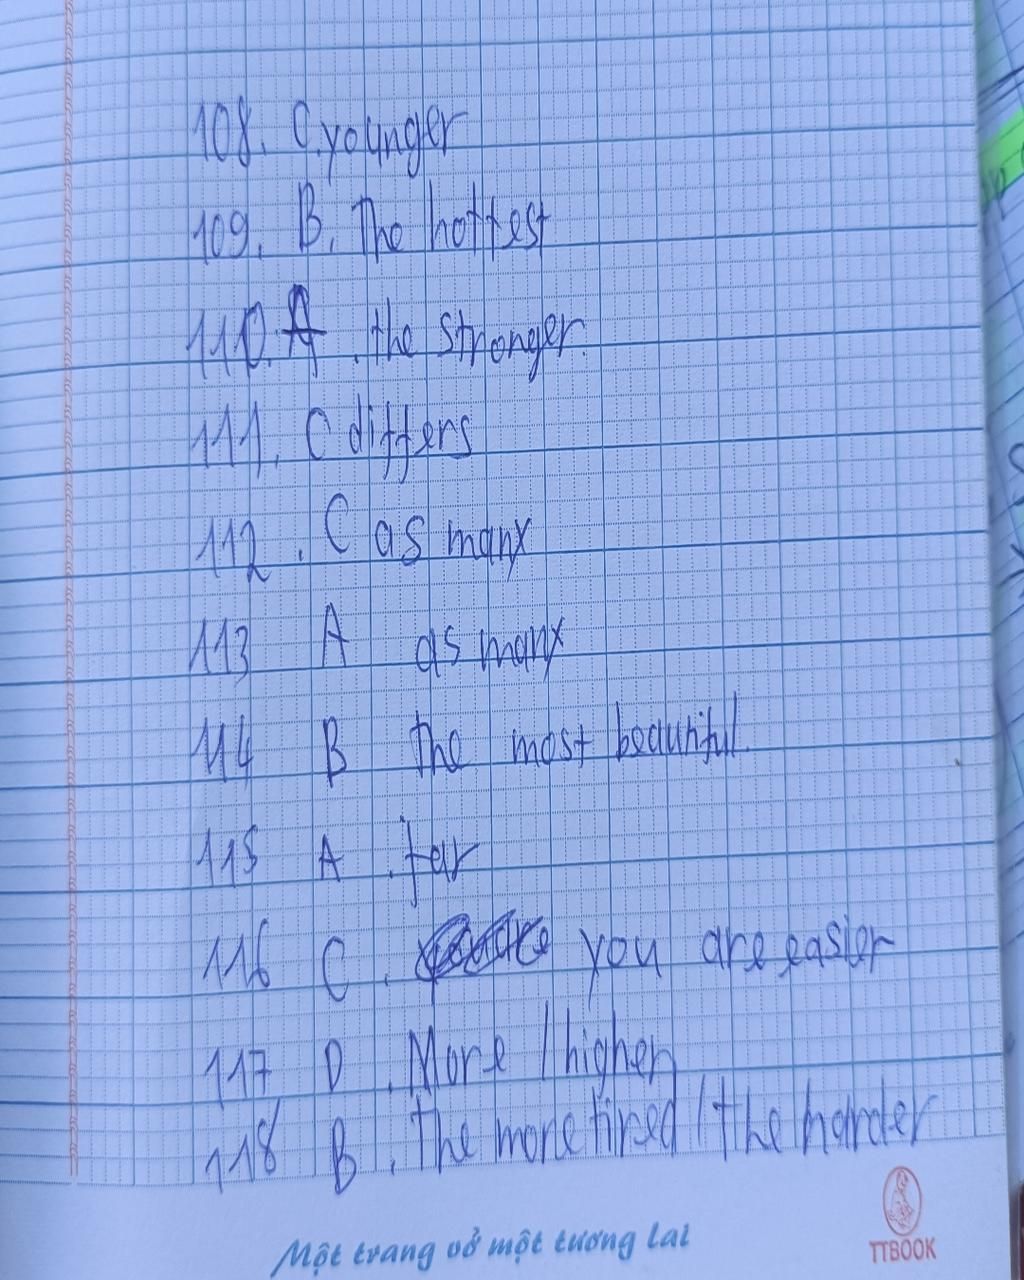 108. C. younger
109. B. The hottest
110. A. the stronger.
111. C differs
112. C as many
113 A as many
114 B The most beautiful.
115 A. far
116 C. you are easier
117 D. More / higher
118 B. The more tired / the harder
Một trang vở một tương lai
TTBOOK